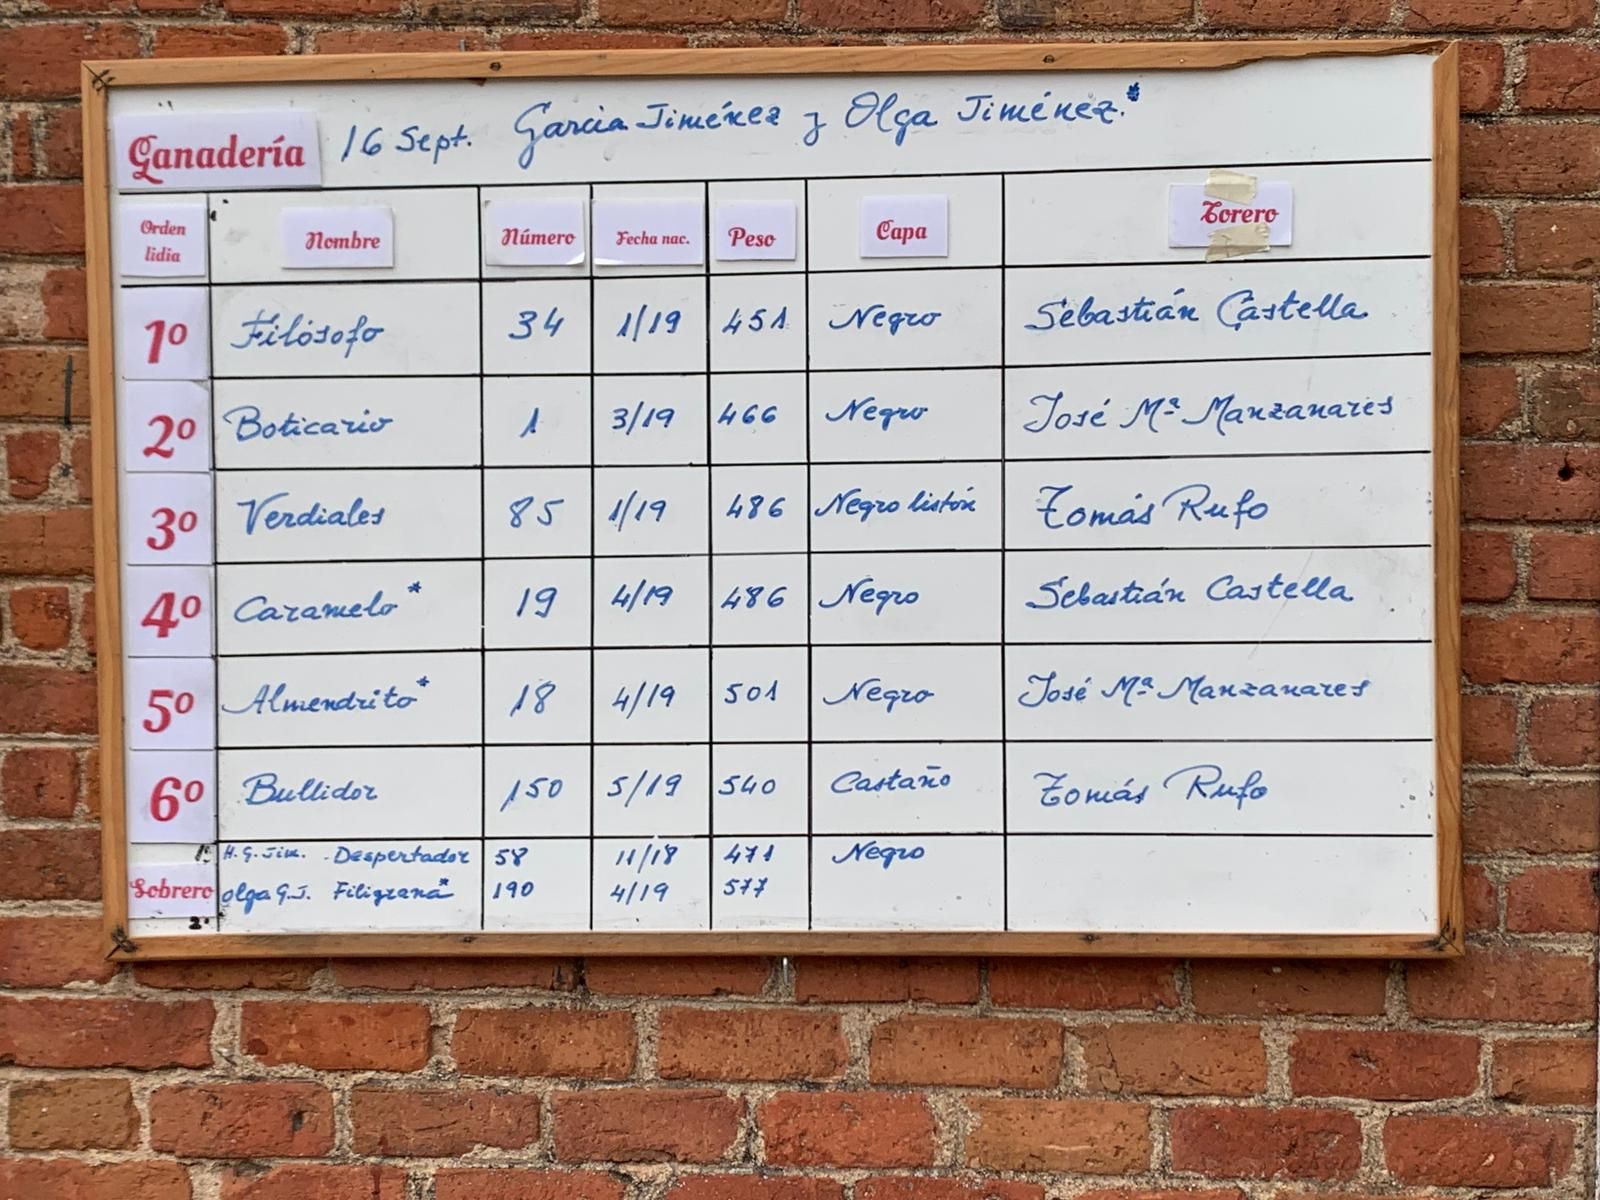 Ganadería 16 Sept. Garcia Jiménez y Olga Jiménez.*
Orden lidia Nombre Número Fecha nac. Peso Capa Torero
1º Filósofo 34 1/19 451 Negro Sebastián Castella
2º Boticario 1 3/19 466 Negro José Mª Manzanares
3º Verdiales 85 1/19 486 Negro listón Tomás Rufo
4º Caramelo* 19 4/19 486 Negro Sebastián Castella
5º Almendrito* 18 4/19 501 Negro José Mª Manzanares
6º Bullidor 150 5/19 540 Castaño Tomás Rufo
1º H.G. Jim. Despertador 58 11/18 471 Negro
Sobrero Olga G.J. Filigrana* 190 4/19 577
2º